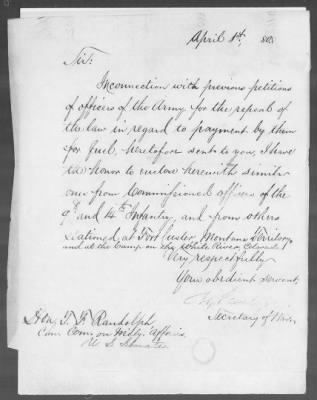 April 1st, 188
Sir:
In connection with previous petitions
of officers of the Army for the repeal of
the law in regard to payment by them
for fuel, heretofore sent to you, I have
the honor to enclose herewith similar
ones from Commissioned officers of the
9th and 14th Infantry, and from others
stationed at Fort Custer, Montana Territory,
and at the Camp on the White River, Colorado.
Very respectfully
Your obedient servant,
Secretary of War.
Hon. T. F. Randolph,
Com. on Mility. Affairs,
U S Senate